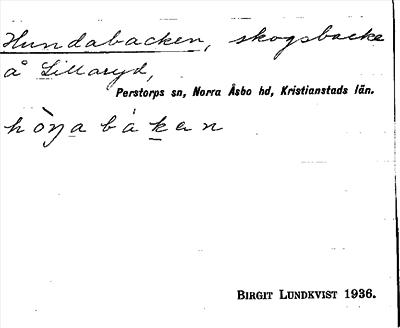 Hundabacken, skogsbacke
å Lillaryd,
Perstorps sn, Norra Åsbo hd, Kristianstads län.
hòŋabákan
BIRGIT LUNDKVIST 1936.